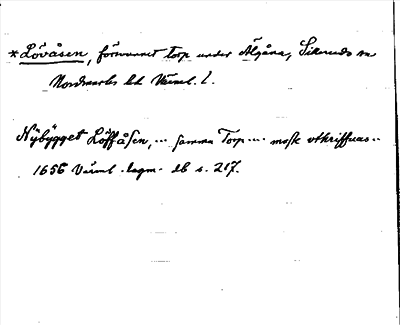 *Lövåsen, försvunnet torp under Älgåna, Silleruds sn
Nordmarks hd Värml. l.
Nÿbÿgget Löffåsen, ... samma Torp .... mosk vthriffuas ..
1656 Värml. lagm. db s. 217.